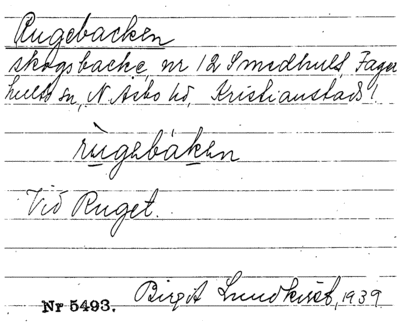 Rugebacken
skogsbacke, nr 12 Smedhult, Fager
hults sn, N. Åsbo hd, Kristianstads l
rùgebàken
Vid Ruget.
Nr 5493. Birgit Lundkvist, 1939